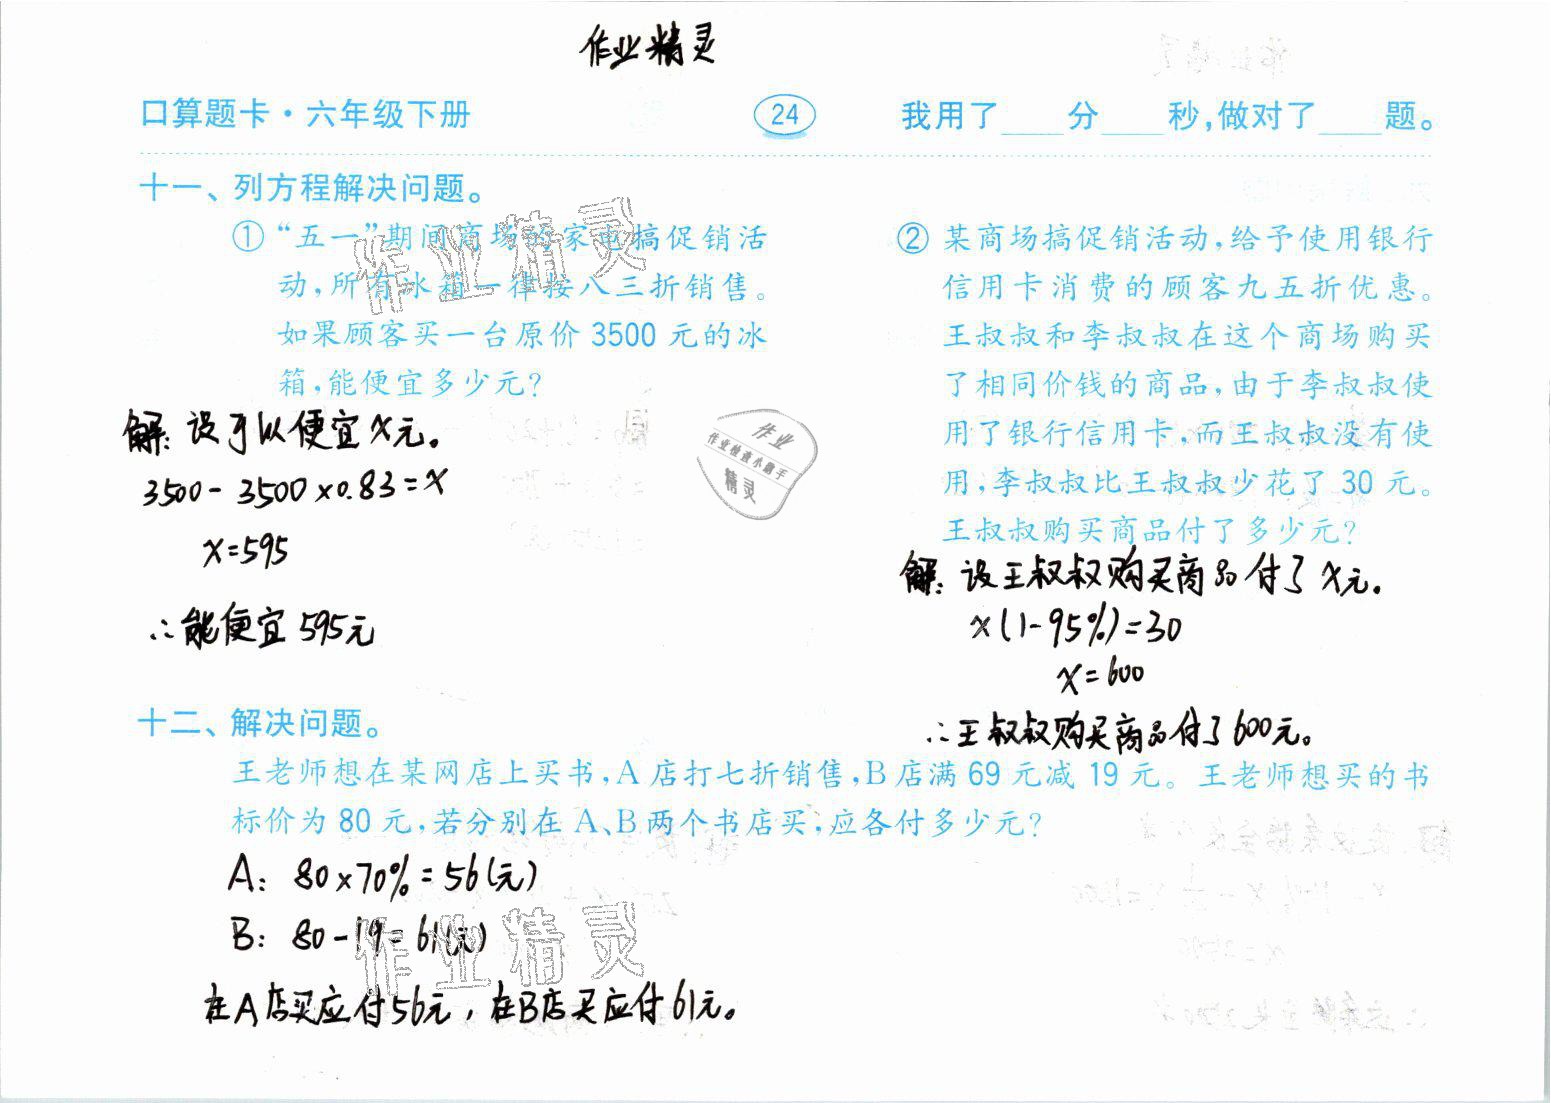 作业精灵
口算题卡·六年级下册
24
我用了____分____秒,做对了____题。
十一、列方程解决问题。
①“五一”期间商场的家电搞促销活
动,所有冰箱一律按八三折销售。
如果顾客买一台原价3500元的冰
箱,能便宜多少元?
解:设可以便宜x元。
3500-3500×0.83=x
x=595
∴能便宜595元
②某商场搞促销活动,给予使用银行
信用卡消费的顾客九五折优惠。
王叔叔和李叔叔在这个商场购买
了相同价钱的商品,由于李叔叔使
用了银行信用卡,而王叔叔没有使
用,李叔叔比王叔叔少花了30元。
王叔叔购买商品付了多少元?
解:设王叔叔购买商品付了x元。
x(1-95%)=30
x=600
∴王叔叔购买商品付了600元。
作业精灵
作业
作业检查小助手
精灵
十二、解决问题。
王老师想在某网店上买书,A店打七折销售,B店满69元减19元。王老师想买的书
标价为80元,若分别在A、B两个书店买,应各付多少元?
A:80×70%=56(元)
B:80-19=61(元)
在A店买应付56元,在B店买应付61元。
作业精灵